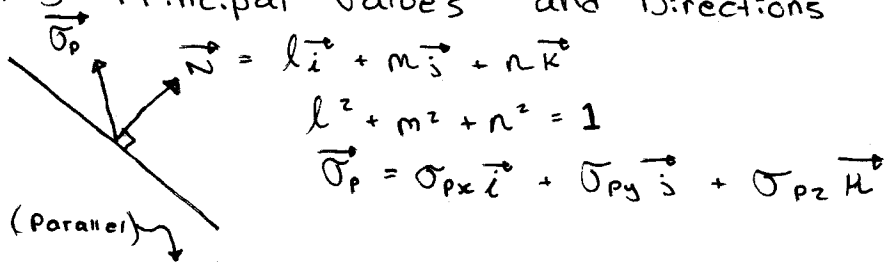 Principal Values and Directions
σ⃗_P N⃗ = l i⃗ + m j⃗ + n k⃗
l² + m² + n² = 1
σ⃗_P = σ_Px i⃗ + σ_Py j⃗ + σ_Pz k⃗
(Parallel)